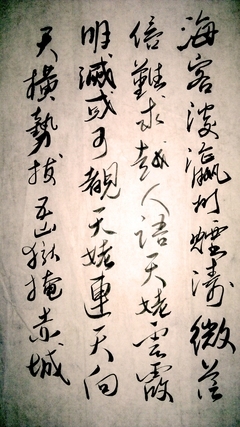 海客談瀛州煙濤微茫
信難求越人語天姥雲霞
明滅或可覩天姥連天向
天橫勢拔五嶽掩赤城